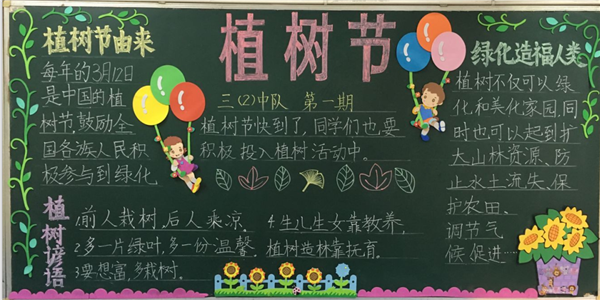 植树节由来
每年的3月12日
是中国的植
树节,鼓励全
国各族人民积
极参与到绿化
植树节
三(2)中队 第一期
植树节快到了,同学们也要
积极投入植树活动中。
绿化造福人类
植树不仅可以绿
化和美化家园,同
时也可以起到扩
大山林资源、防
止水土流失、保
护农田、
调节气
候、促进……
植树谚语
1.前人栽树,后人乘凉。
2.多一片绿叶,多一份温馨
3.要想富,多栽树。
4.生儿生女靠教养,
植树造林靠抚育。